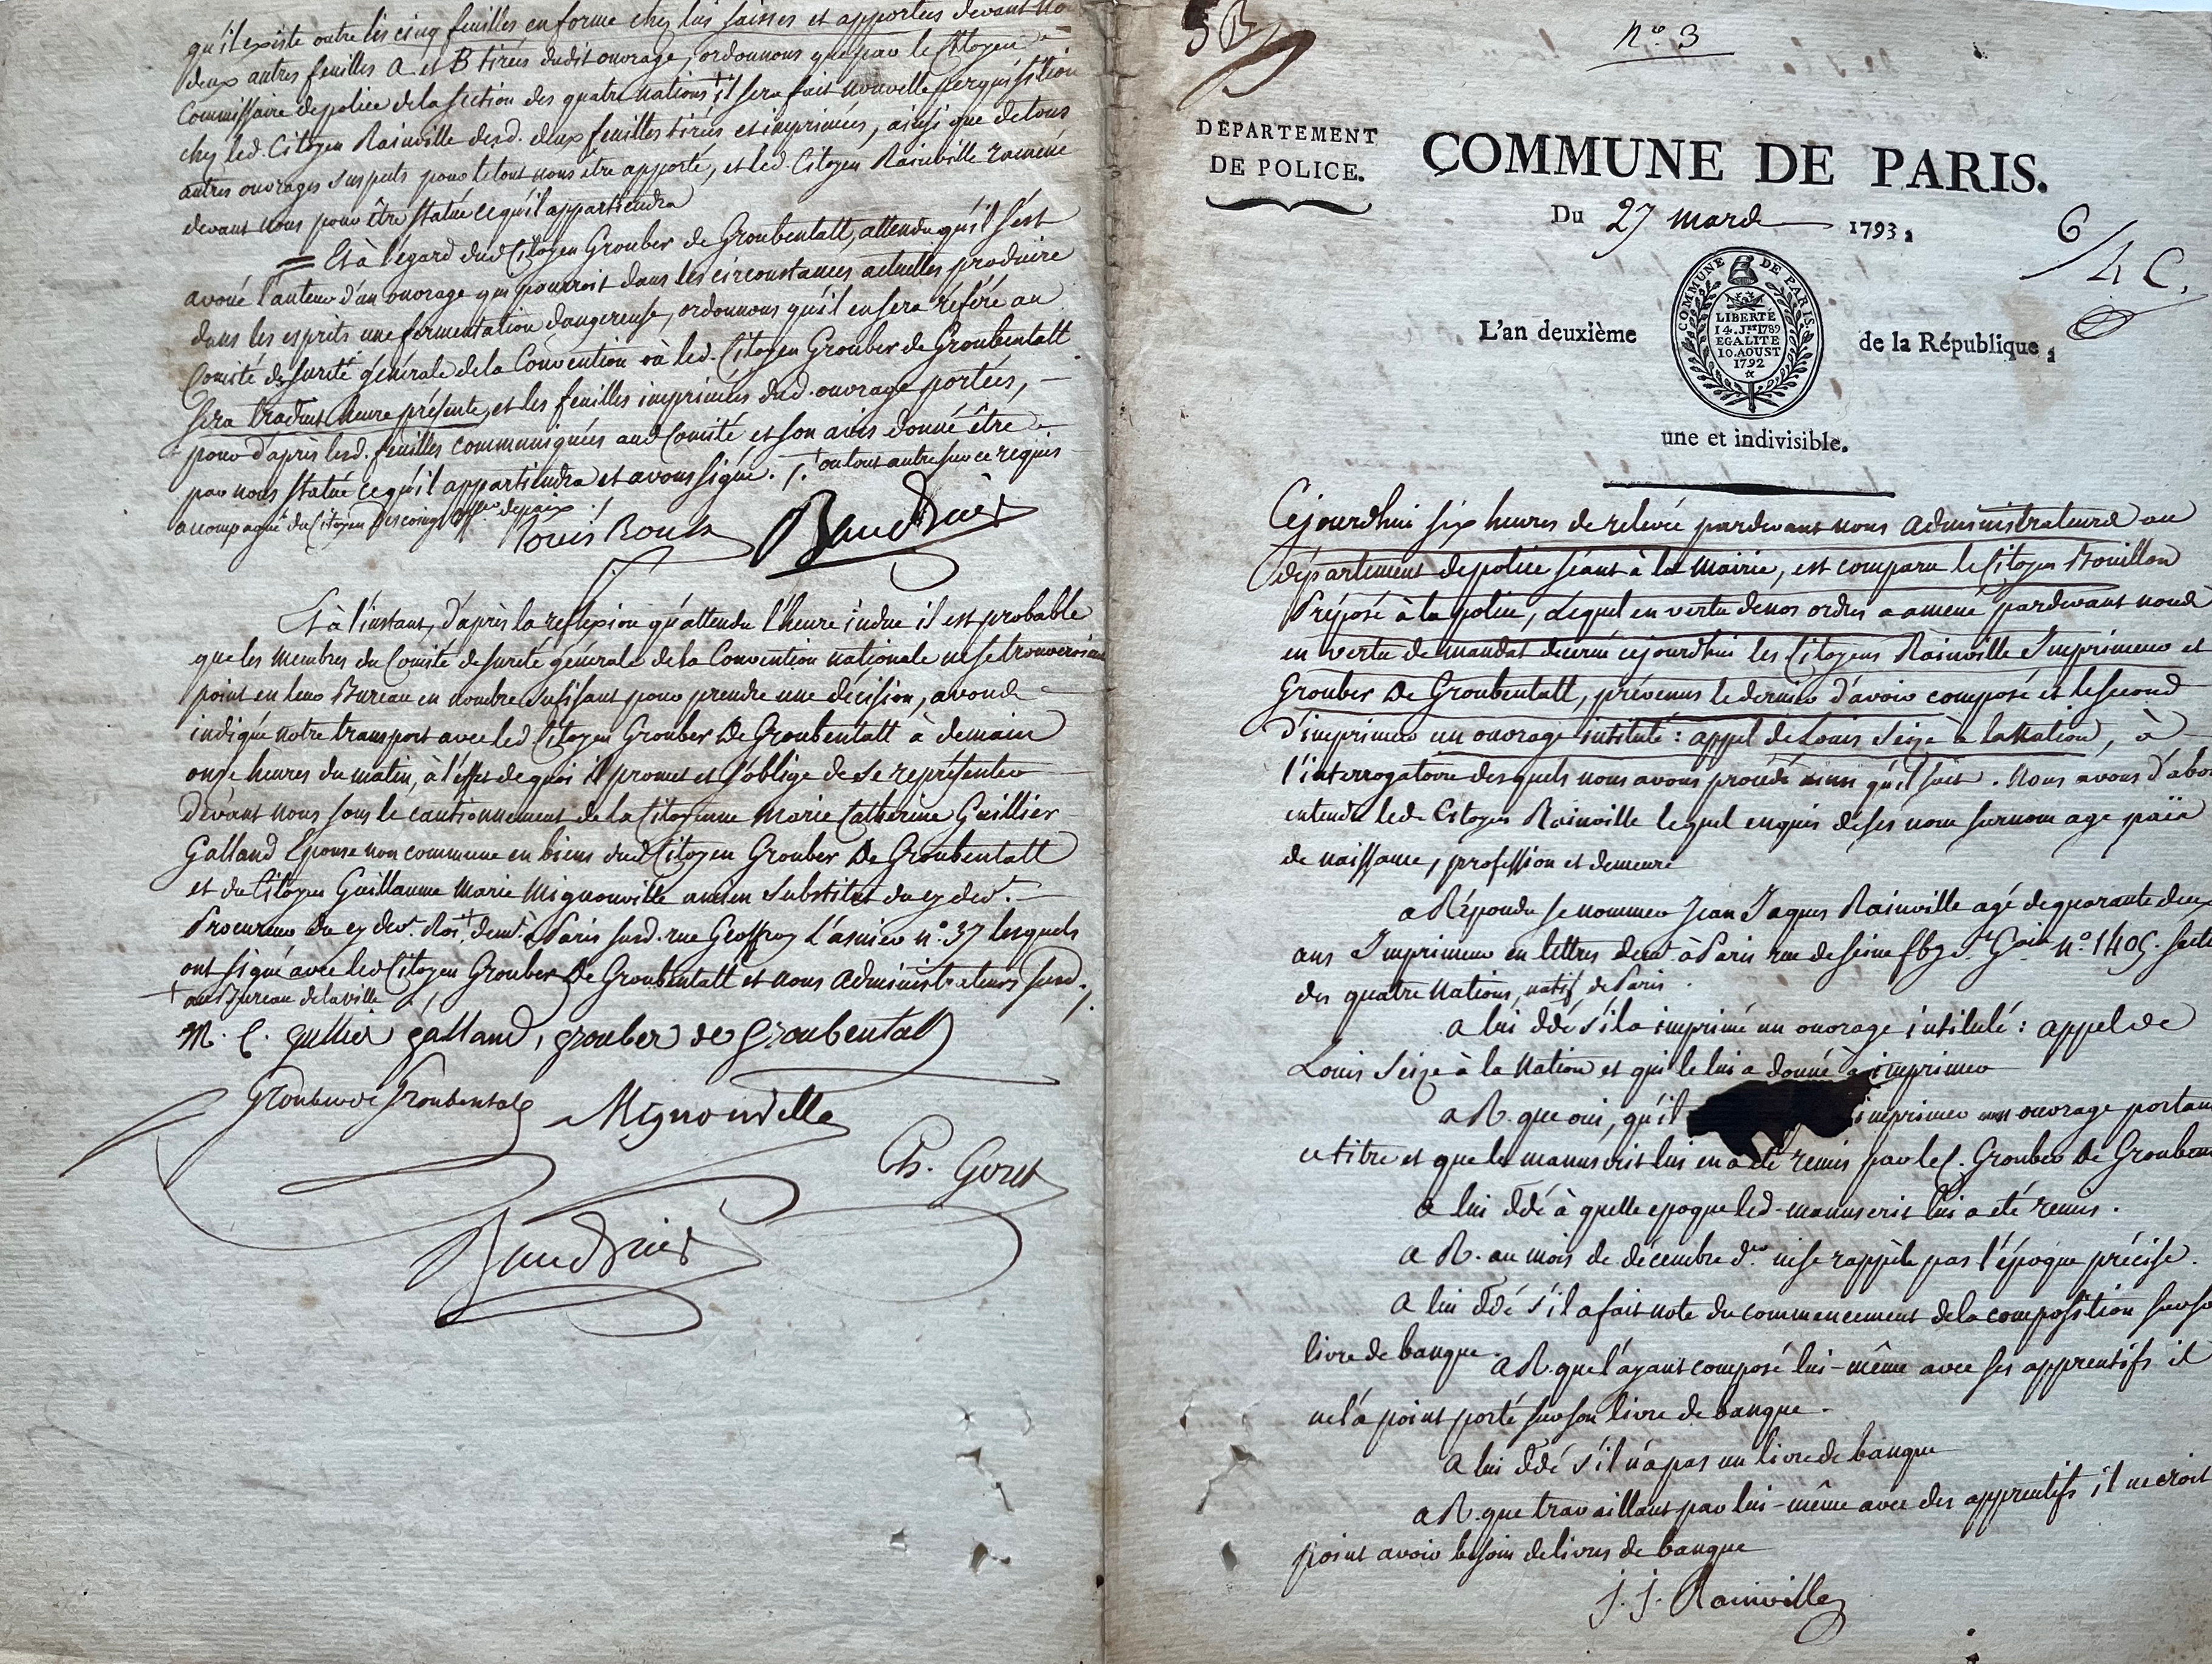 qu'il existe outre les cinq feuilles en forme chez lui saisies et apportées devant no
deux autres feuilles A et B tirées dudit ouvrage, ordonnons que par le Citoyen
Commissaire de police de la section des quatre nations + il sera fait nouvelle perquisition
chez led. Citoyen Rainville desd. deux feuilles tirées et imprimées, ainsi que de tous
autres ouvrages suspects pour le tout nous être apporté, et led. Citoyen Rainville ramené
devant nous pour être statué ce qu'il appartiendra
= Et à l'égard dud Citoyen Grouber de Groubentall, attendu qu'il s'est
avoué l'auteur d'un ouvrage qui pourroit dans les circonstances actuelles produire
dans les esprits une fermentation dangereuse, ordonnons qu'il en sera référé au
Comité de sureté générale de la Convention où led. Citoyen Grouber de Groubentall
sera traduit heure présente, et les feuilles imprimées dud. ouvrage portées,
pour d'après lesd. feuilles communiquées aud Comité et son avis donné être
par nous statué ce qu'il appartiendra et avons signé. /. + ou tout autre sur ce requis
accompagné du Citoyen Descoings off.er de paix ./
Louis Roux Baudrais
Et à l'instant, d'après la reflexion qu'attendu l'heure indue il est probable
que les membres du Comité de sureté générale de la Convention nationale ne se trouveroient
point en leur Bureau en nombre sufisant pour prendre une décision, avons
indiqué notre transport avec led Citoyen Grouber De Groubentall à demain
onze heures du matin, à l'effet de quoi il promet et s'oblige de se représenter
devant nous sous le cautionnement de la Citoyenne Marie Catherine Guillier
Galland Epouse non commune en biens dud Citoyen Grouber De Groubentall
et du Citoyen Guillaume Marie Mignonville ancien Substitut du cy dev.t
Procureur du cy dev.t Roi + dem.t à Paris susd. rue Geoffroy L'asnier n.o 37 lesquels
ont signé avec led Citoyen Grouber De Groubentall et nous Administrateurs susd. /.
+ au Bureau de la ville
M. C. gullier galland, grouber de groubentall
Grouber de Groubentall Mignonville
Ch. Goret
Baudrais
n.o 3
DÉPARTEMENT
DE POLICE.
COMMUNE DE PARIS.
Du 27 mars 1793,
6
4 C.
L'an deuxième
COMMUNE DE PARIS.
LIBERTÉ
14. J.ET 1789
EGALITE
10. AOUST
1792
de la République,
une et indivisible.
Cejourdhui six heures de relevée pardevant nous administrateurs au
département de police séant à la mairie, est comparu le Citoyen Bouillon
Préposé à la police, Lequel en vertu de nos ordres a amené pardevant nous
en vertu de mandat décerné cejourdhui les Citoyens Rainville Imprimeur et
Grouber De Groubentall, prévenus le dernier d'avoir composé et le second
d'imprimer un ouvrage intitulé : appel de Louis Seize à la Nation, à
l'interrogatoire desquels nous avons procédé ainsi qu'il suit. Nous avons d'abor
entendu led. Citoyen Rainville lequel enquis de ses nom surnom age païs
de naissance, profession et demeure
a Répondu se nommer Jean Jaques Rainville agé de quarante deux
ans Imprimeur en lettres dem.t à Paris rue de seine fbg. S.t G.ain N.o 1405. secti
des quatre Nations, natif de Paris.
a lui ddé s'il a imprimé un ouvrage intitulé : appel de
Louis Seize à la Nation et qui le lui a donné à imprimer
a R. que oui, qu'il imprimer un ouvrage portan
ce titre et que le manuscrit lui en a été remis par le C. Grouber De Grouben
a lui ddé à quelle epoque led. manuscrit lui a été remis.
a R. au mois de décembre d.er ne se rappèle pas l'époque précise.
a lui ddé s'il a fait note du commencement de la composition sur so
livre de banque.
a R. que l'ayant composé lui-même avec ses apprentifs il
ne l'a point porté sur son livre de banque.
a lui ddé s'il n'a pas un livre de banque
a R. que travaillant par lui-même avec des apprentifs il ne croit
point avoir besoin de livres de banque
J. J. Rainville